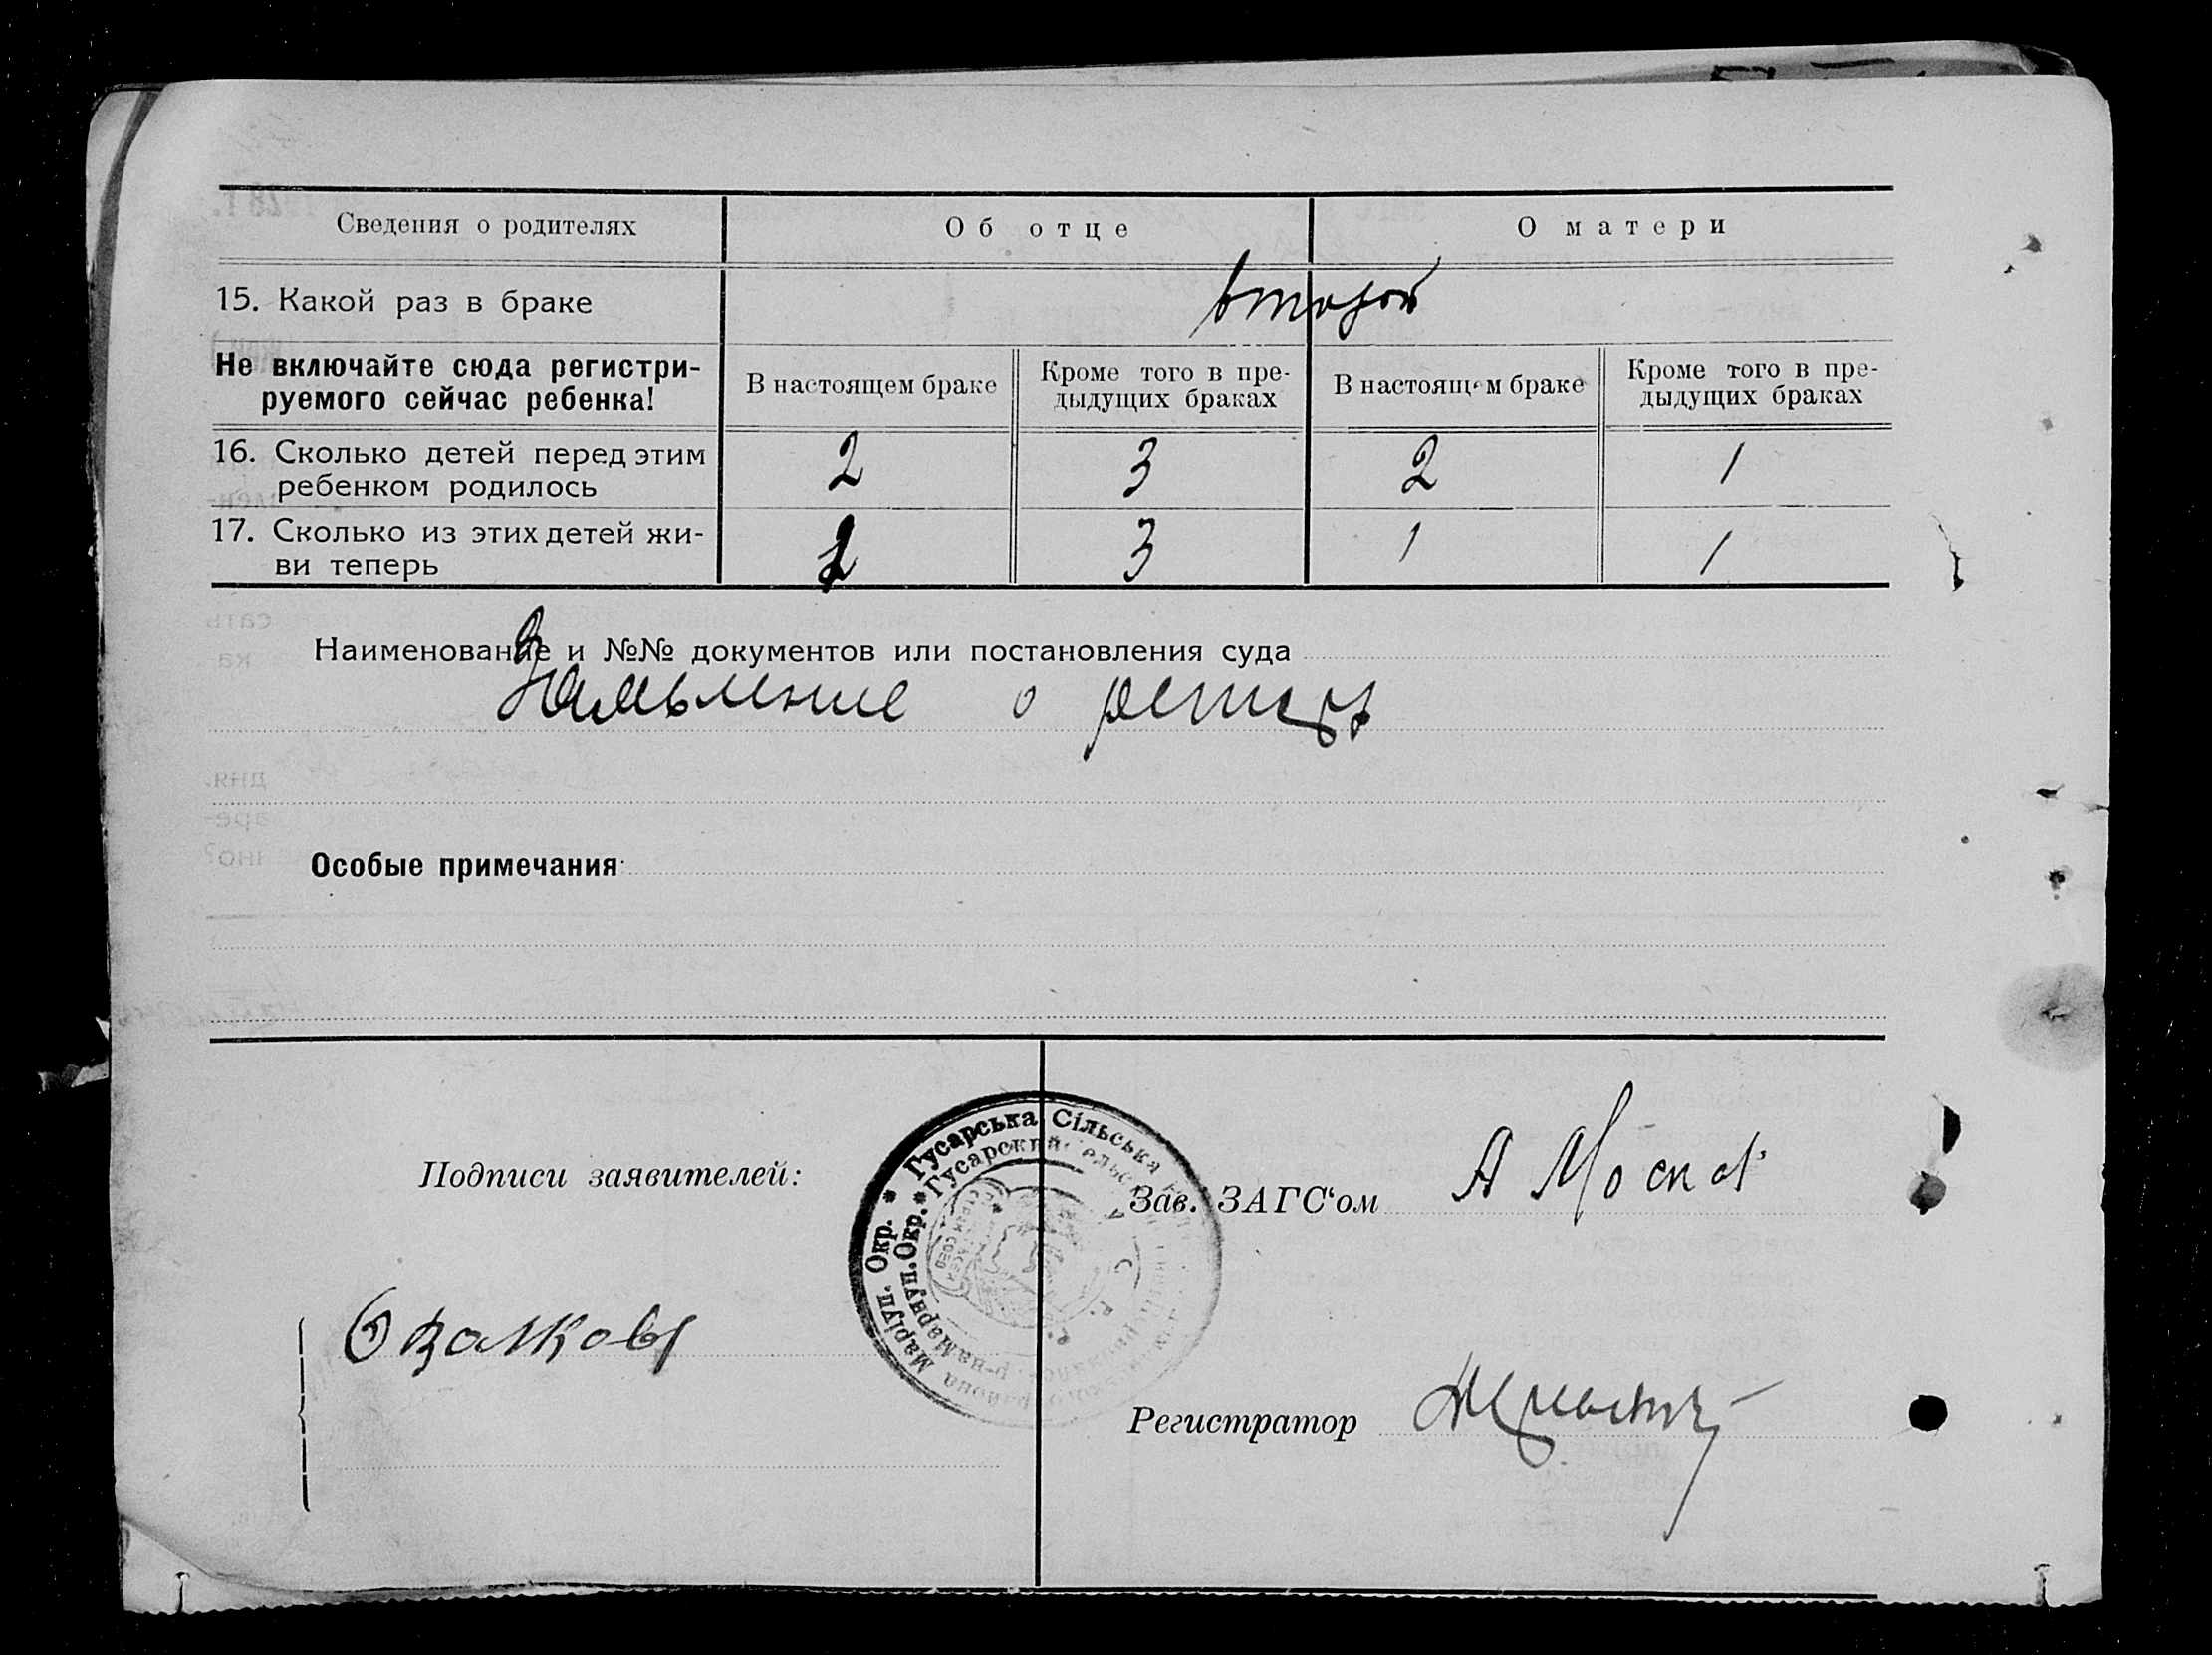 Сведения о родителях
Об отце
О матери
15. Какой раз в браке
второй
Не включайте сюда регистри-
руемого сейчас ребенка!
В настоящем браке
Кроме того в пре-
дыдущих браках
В настоящем браке
Кроме того в пре-
дыдущих браках
16. Сколько детей перед этим
ребенком родилось
2
3
2
1
17. Сколько из этих детей жи-
ви теперь
3
1
1
Наименование и №№ документов или постановления суда
Заявление о
Особые примечания
Подписи заявителей:
Гусарська Сільська
Гусарский
Маріуп. Окр.
Мариуп. Окр.
Зав. ЗАГС‘ом
А
Регистратор